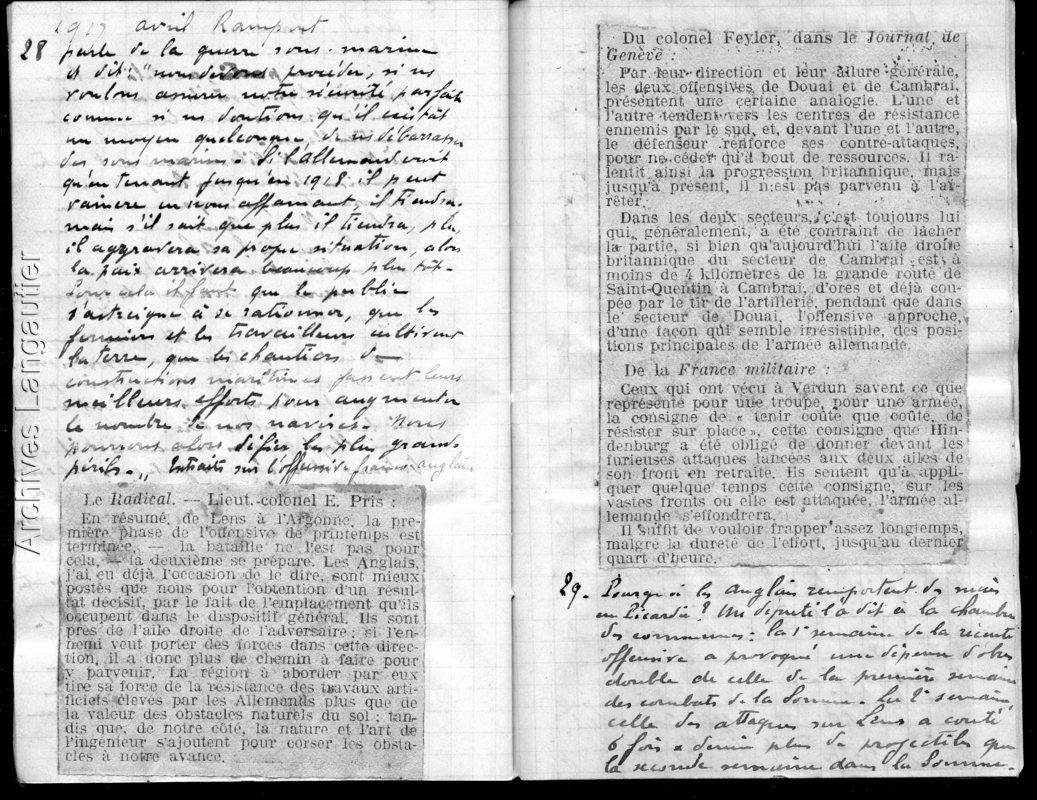 1917 avril Rampont
28 parle de la guerre sous-marine
et dit : "nous devons procéder, si ns
voulons assurer notre sécurité parfaite
comme si ns doutions qu'il existât
un moyen quelconque de ns débarrasser
des sous marins. Si l'allemand croit
qu'en tenant jusqu'en 1918 il peut
vaincre en nous affamant, il tiendra.
mais s'il sait que plus il tiendra, plus
il aggravera sa propre situation, alors
la paix arrivera beaucoup plus tôt.
Pour cela il faut que le public
s'astreigne à se rationner, que les
fermiers et les travailleurs cultivent
la terre, que les chantiers de
constructions maritimes fassent leurs
meilleurs efforts pour augmenter
le nombre de nos navires. Nous
pourrons alors défier les plus grands
périls." Extraits sur l'offensive franco-anglaise
Le Radical. — Lieut.-colonel E. Pris :
En résumé, de Lens à l'Argonne, la pre-
mière phase de l'offensive de printemps est
terminée, — la bataille ne l'est pas pour
cela, — la deuxième se prépare. Les Anglais,
j'ai eu déjà l'occasion de le dire, sont mieux
postés que nous pour l'obtention d'un résul-
tat décisif, par le fait de l'emplacement qu'ils
occupent dans le dispositif général. Ils sont
près de l'aile droite de l'adversaire ; si l'en-
nemi veut porter des forces dans cette direc-
tion, il a donc plus de chemin à faire pour
y parvenir. La région à aborder par eux
tire sa force de la résistance des travaux arti-
ficiels élevés par les Allemands plus que de
la valeur des obstacles naturels du sol ; tan-
dis que, de notre côté, la nature et l'art de
l'ingénieur s'ajoutent pour corser les obsta-
cles à notre avance.
Archives Langautier
Du colonel Feyler, dans le Journal de
Genève :
Par leur direction et leur allure générale,
les deux offensives de Douai et de Cambrai,
présentent une certaine analogie. L'une et
l'autre tendent vers les centres de résistance
ennemis par le sud, et, devant l'une et l'autre,
le défenseur renforce ses contre-attaques,
pour ne céder qu'à bout de ressources. Il ra-
lentit ainsi la progression britannique, mais
jusqu'à présent, il n'est pas parvenu à l'ar-
rêter.
Dans les deux secteurs, c'est toujours lui
qui, généralement, a été contraint de lâcher
la partie, si bien qu'aujourd'hui l'aile droite
britannique du secteur de Cambrai est à
moins de 4 kilomètres de la grande route de
Saint-Quentin à Cambrai, d'ores et déjà cou-
pée par le tir de l'artillerie, pendant que dans
le secteur de Douai, l'offensive approche,
d'une façon qui semble irrésistible, des posi-
tions principales de l'armée allemande.
De la France militaire :
Ceux qui ont vécu à Verdun savent ce que
représente pour une troupe, pour une armée,
la consigne de « tenir coûte que coûte, de
résister sur place », cette consigne que Hin-
denburg a été obligé de donner devant les
furieuses attaques lancées aux deux ailes de
son front en retraite. Ils sentent qu'à appli-
quer quelque temps cette consigne, sur les
vastes fronts où elle est attaquée, l'armée al-
lemande s'effondrera.
Il suffit de vouloir frapper assez longtemps,
malgré la dureté de l'effort, jusqu'au dernier
quart d'heure.
29. Pourquoi les anglais remportent des succès
en Picardie ? Un député l'a dit à la chambre
des communes : la 1e semaine de la récente
offensive a provoqué une dépense d'obus
double de celle de la première semaine
des combats de la Somme. La 2e semaine
celle des attaques sur Lens a coûté
6 fois ½ demie plus de projectiles que
la seconde semaine dans la Somme.